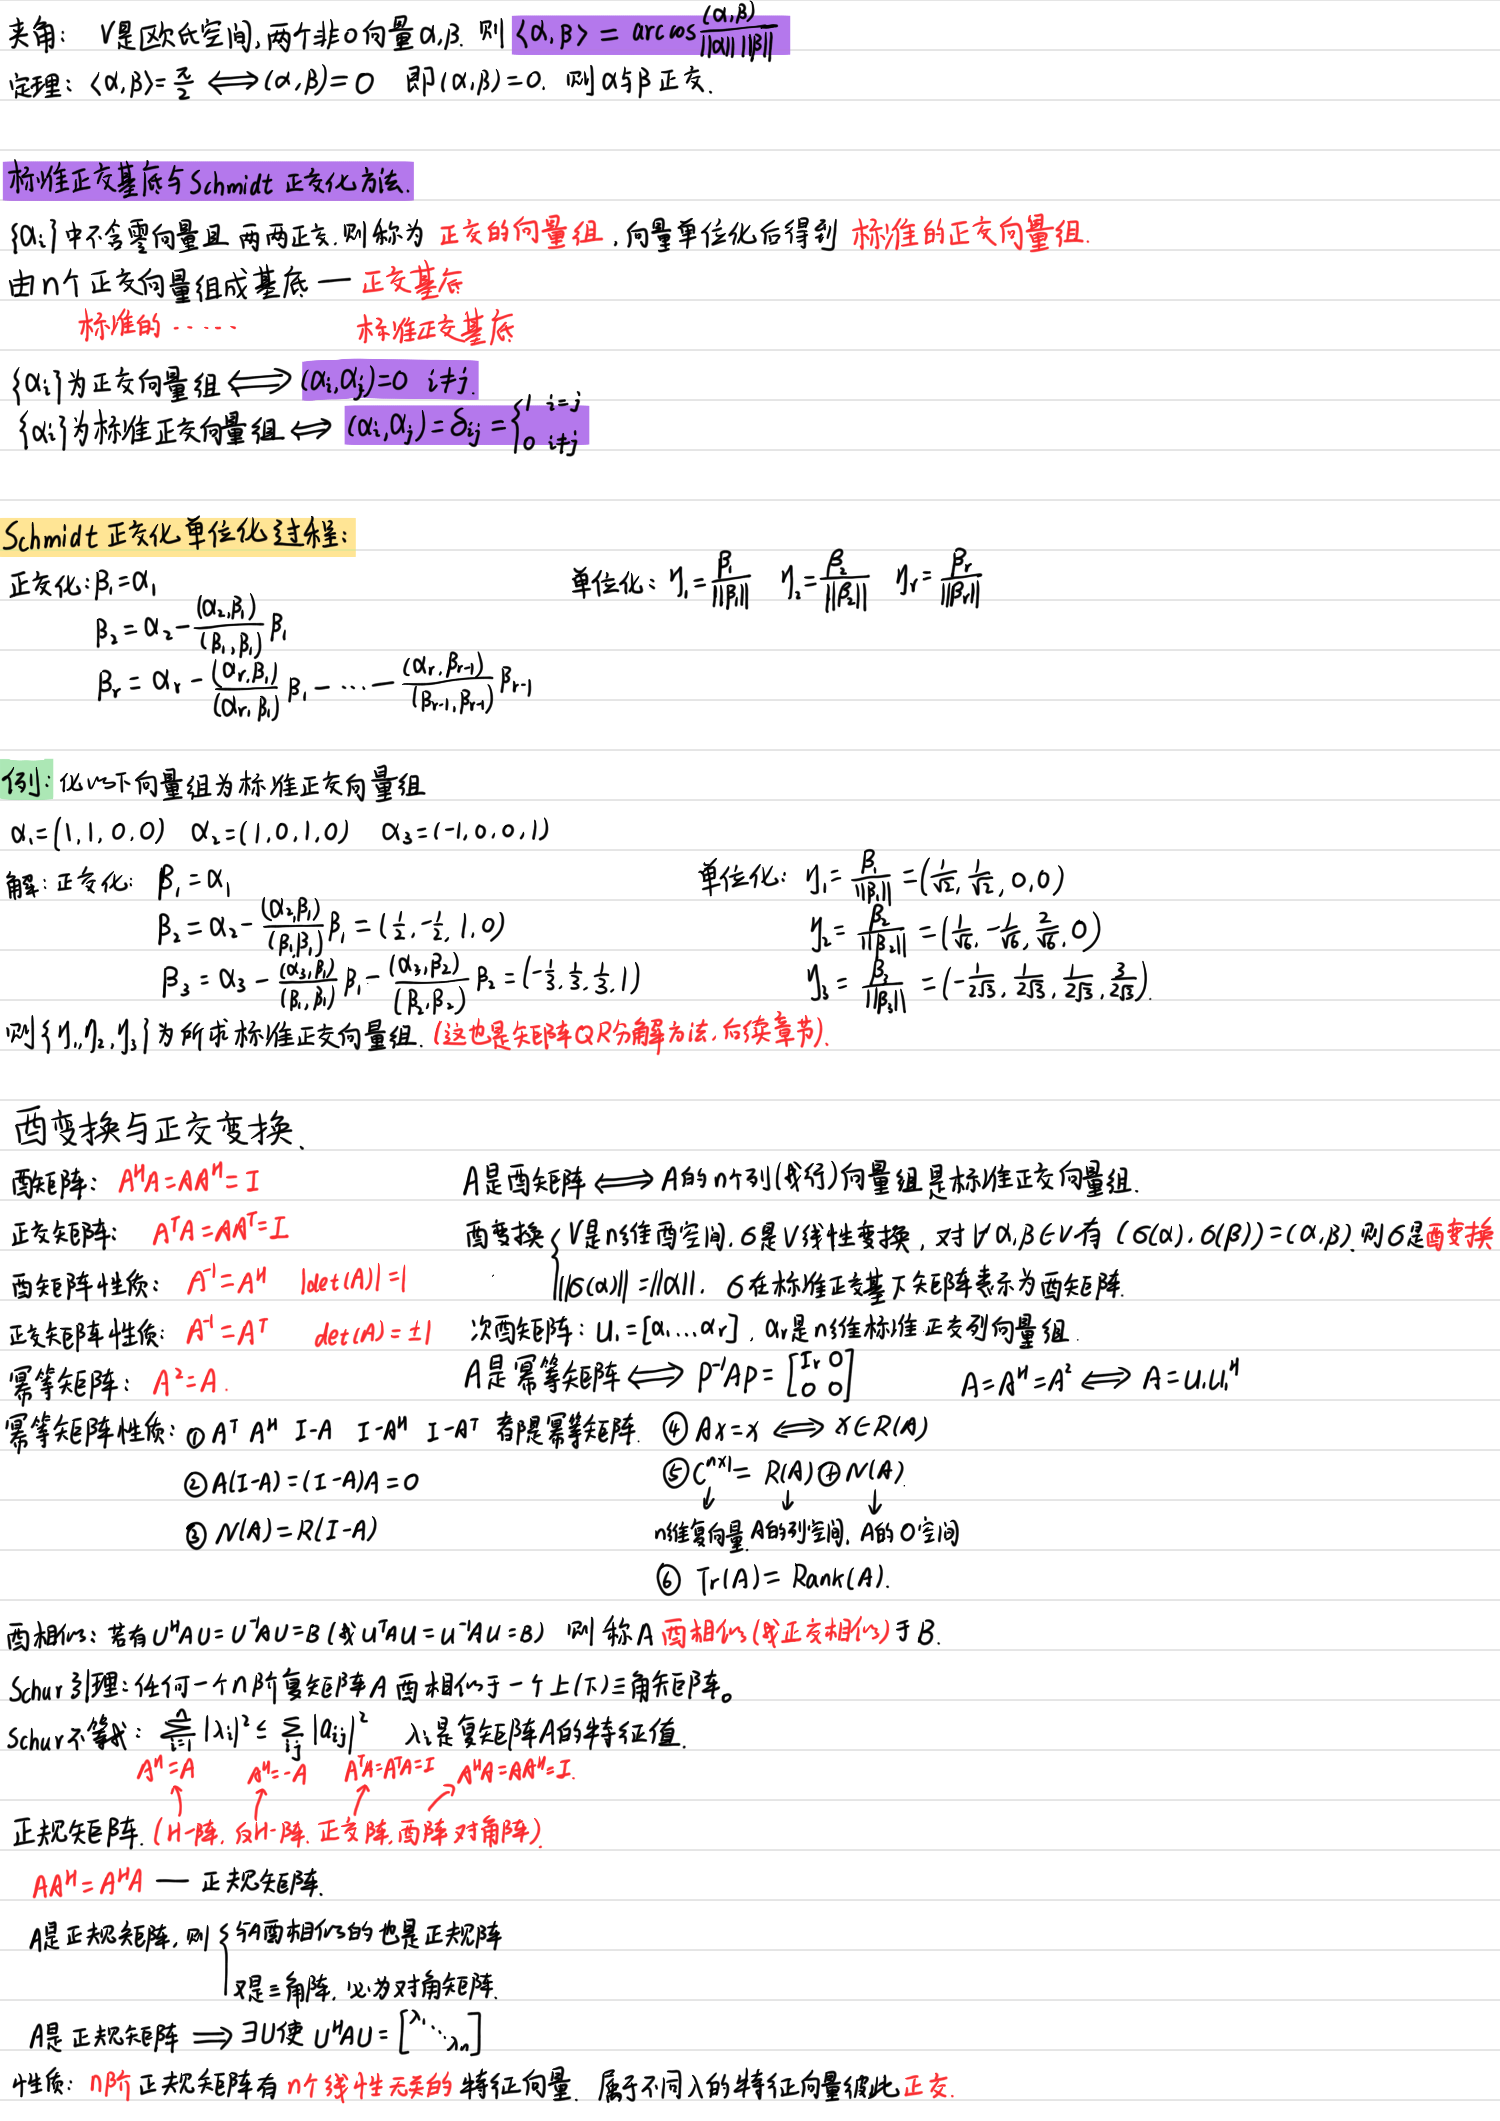 夹角: V是区欠氏空间,两个非0向量α,β. 则 <α,β> = arccos (α,β)/(||α|| ||β||)
定理: <α,β>=π/2 ⟺ (α,β)=0 即(α,β)=0. 则α与β正交.
标准正交基底与Schmidt 正交化方法.
{αi}中不含零向量且两两正交.则称为 正交的向量组,向量单位化后得到 标准的正交向量组.
由n个正交向量组成基底 — 正交基底
标准的 ····· 标准正交基底
{αi}为正交向量组 ⟺ (αi,αj)=0 i≠j.
{αi}为标准正交向量组 ⟺ (αi,αj)=δij={1 i=j
0 i≠j
Schmidt 正交化单位化过程:
正交化: β1=α1 单位化: η1=β1/||β1|| η2=β2/||β2|| ηr=βr/||βr||
β2=α2-(α2,β1)/(β1,β1) β1
βr=αr-(αr,β1)/(αr,β1) β1-···-(αr,βr-1)/(βr-1,βr-1) βr-1
例: 化以下向量组为标准正交向量组
α1=(1,1,0,0) α2=(1,0,1,0) α3=(-1,0,0,1)
解: 正交化: β1=α1 单位化: η1=β1/||β1||=(1/√2, 1/√2, 0,0)
β2=α2-(α2,β1)/(β1,β1) β1=(1/2,-1/2,1,0) η2=β2/||β2||=(1/√6,-1/√6,2/√6,0)
β3=α3-(α3,β1)/(β1,β1) β1-(α3,β2)/(β2,β2) β2=(-1/3,1/3,1/3,1) η3=β3/||β3||=(-1/2√3,1/2√3,1/2√3,3/2√3).
则{η1,η2,η3}为所求标准正交向量组.(这也是矩阵QR分解方法,后续章节).
酉变换与正交变换.
酉矩阵: A^H A=AA^H=I A是酉矩阵 ⟺ A的n个列(或行)向量组是标准正交向量组.
正交矩阵: A^T A=AA^T=I 酉变换 { V是n维酉空间,σ是V线性变换,对∀α,β∈V有 (σ(α),σ(β))=(α,β).则σ是酉变换
酉矩阵性质: A^-1=A^H |det(A)|=1 ||σ(α)||=||α||. σ在标准正交基下矩阵表示为酉矩阵.
正交矩阵性质: A^-1=A^T det(A)=±1 次酉矩阵: U1=[α1...αr], αr是n维标准正交列向量组.
幂等矩阵: A²=A. A是幂等矩阵 ⟺ P^-1AP=[Ir 0 0 0] A=A^H=A² ⟺ A=U1U1^H
幂等矩阵性质: ① A^T A^H I-A I-A^H I-A^T 都是幂等矩阵. ④ Ax=x ⟺ x∈R(A)
② A(I-A)=(I-A)A=0 ⑤ C^n×1= R(A)⊕N(A).
③ N(A)=R(I-A) n维复向量. A的列空间. A的0空间
⑥ Tr(A)= Rank(A).
酉相似: 若有U^H AU=U^-1AU=B(或U^T AU=U^-1AU=B) 则称A 酉相似(或正交相似)于B.
Schur引理:任何一个n阶复矩阵A酉相似于一个上(下)三角矩阵。
Schur不等式: ∑i=1^n |λi|² ≤ ∑ij |aij|² λi是复矩阵A的特征值.
A^H=A A^H=-A A^T A=A^T A=I A^H A=AA^H=I.
正规矩阵.(H-阵.反H-阵.正交阵.酉阵 对角阵).
AA^H=A^H A — 正规矩阵.
A是正规矩阵,则 { 与A酉相似的也是正规阵
又是三角阵,必为对角矩阵.
A是正规矩阵 ⟹ ∃U使 U^H AU=[λ1 ⋱ λn]
性质: n阶正规矩阵有n个线性无关的特征向量. 属于不同λ的特征向量彼此正交.